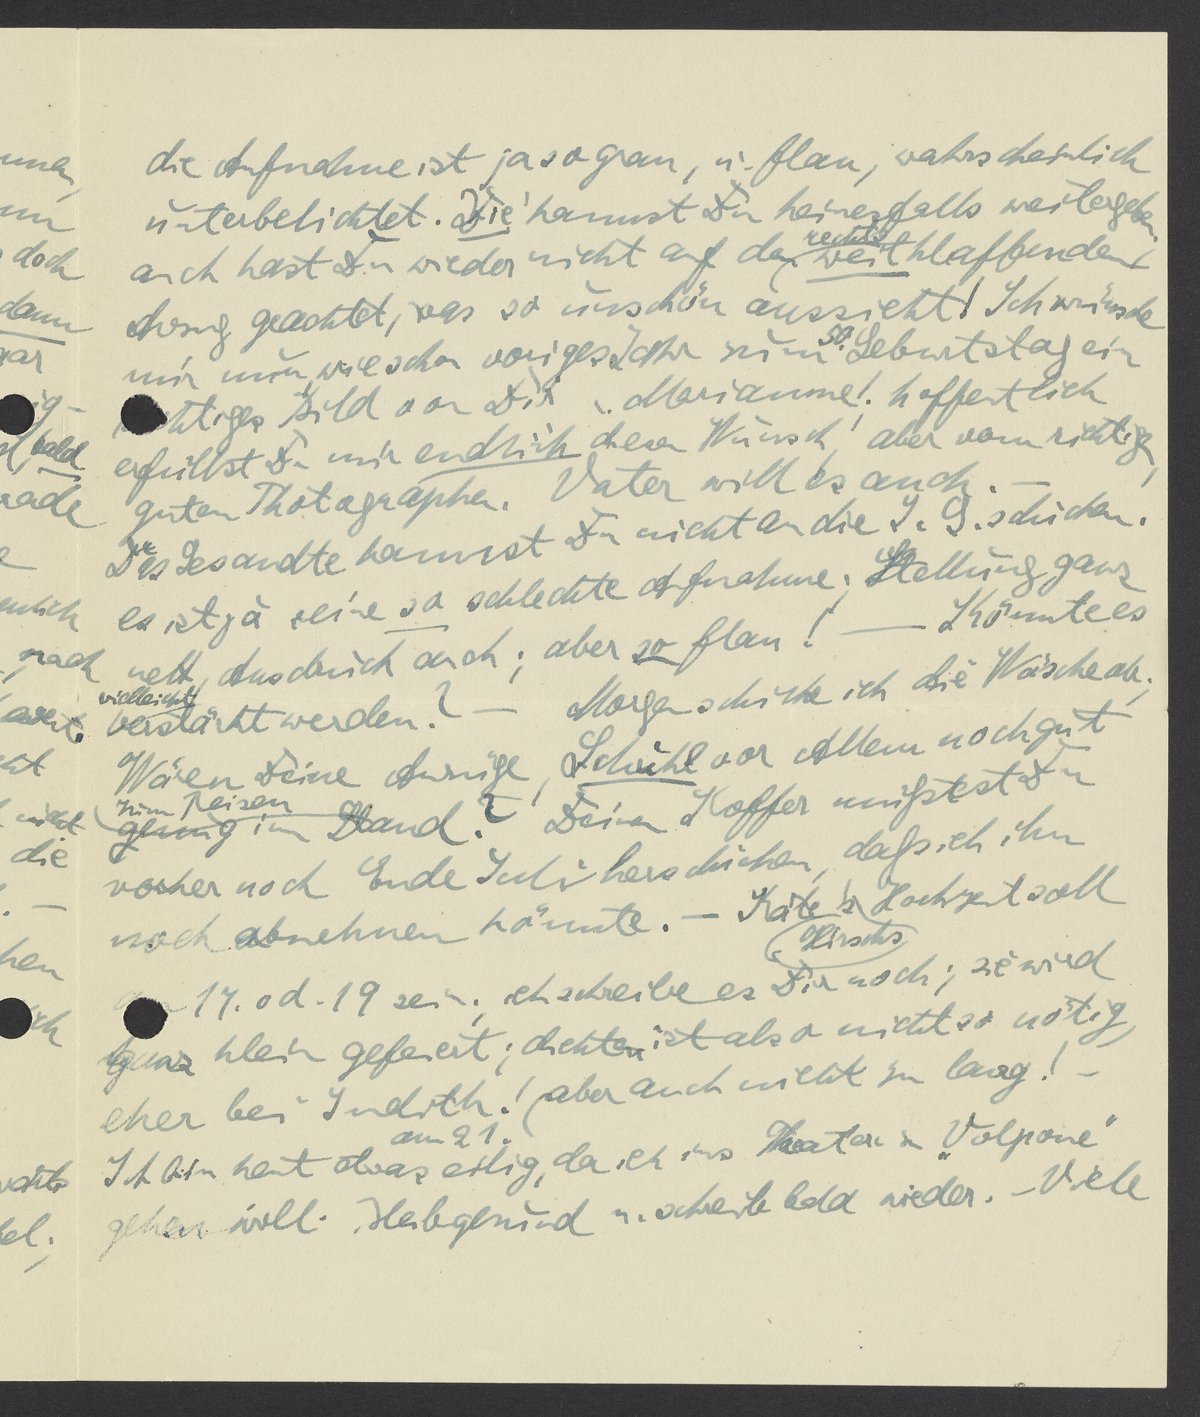 die Aufnahme ist ja so grau, u. flau, wahrscheinlich
unterbelichtet. Die kannst Du keinesfalls weitergeben,
auch hast Du wieder nicht auf den
rechts
weit klaffenden
Anzug geachtet, was so unschön aussieht! Ich wünsche
mir nun, wie schon voriges Jahr zum 50. Geburtstag ein
richtiges Bild von Dir u. Marianne! hoffentlich
erfüllst Du mir endlich diesen Wunsch, aber vom richtig,
guten Photographen. Vater will es auch. —
Gesandte kannst Du nicht an die I. G. schicken.
es ist ja eine so schlechte Aufnahme; Stellung ganz
nett, Ausdruck auch; aber so flau! — Könnte es
vielleicht
verstärkt werden? — Morgen schicke ich die Wäsche ab;
Wären Deine Anzüge, Schuhe vor Allem noch gut
zum Reisen
genug im Stand? Deinen Koffer müßtest Du
vorher noch Ende Juli herschicken, daß ich ihn
noch abnehmen könnte. — Käte's Hochzeit soll
Hirschs
17. od. 19 sein; ich schreibe es Dir noch; sie wird
ganz klein gefeiert; dichten ist also nicht so nötig,
eher bei Judith! (aber auch nicht zu lang! -
am 21.
Ich bin heut etwas eilig, da ich ins Theater in „Volpone"
gehen will. Bleib gesund u. schreib bald wieder. — Viele
doch
dann
bald
nach
nicht
die